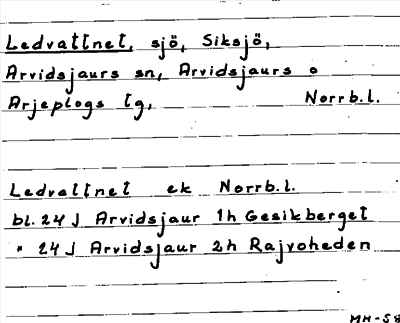 Ledvattnet, sjö, Siksjö,
Arvidsjaurs sn, Arvidsjaurs o
Arjeplogs tg, Norrb.l.
Ledvattnet ek Norrb.l.
bl. 24 J Arvidsjaur 1h Gesikberget
" 24 J Arvidsjaur 2h Rajvoheden
MH-58